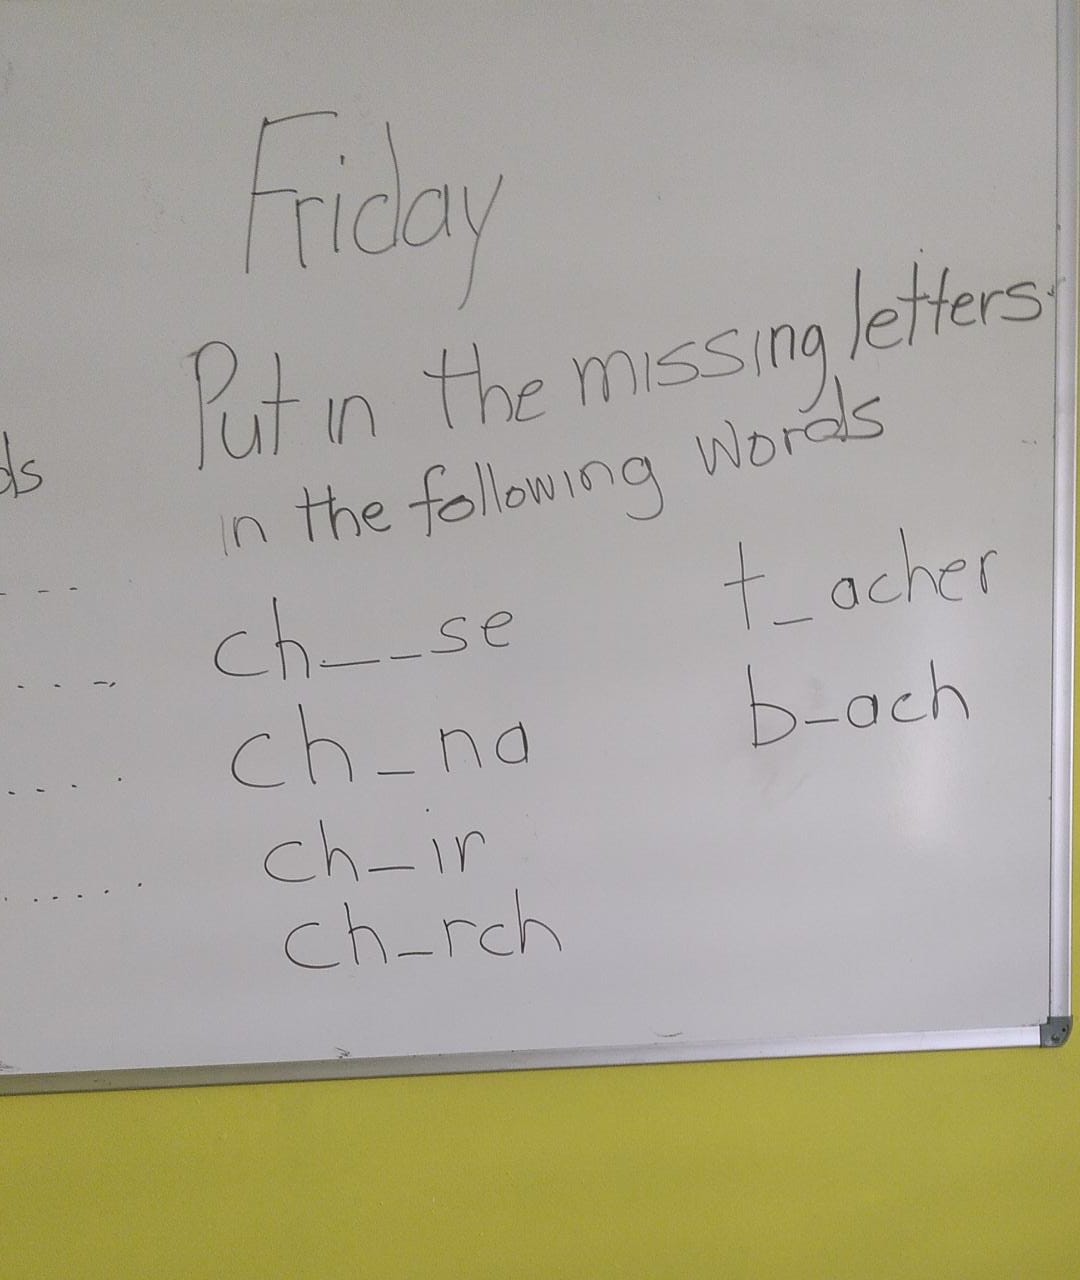 Friday
Put in the missing letters
in the following words
ds
ch__se
t_acher
ch_na
b_ach
ch_ir
ch_rch